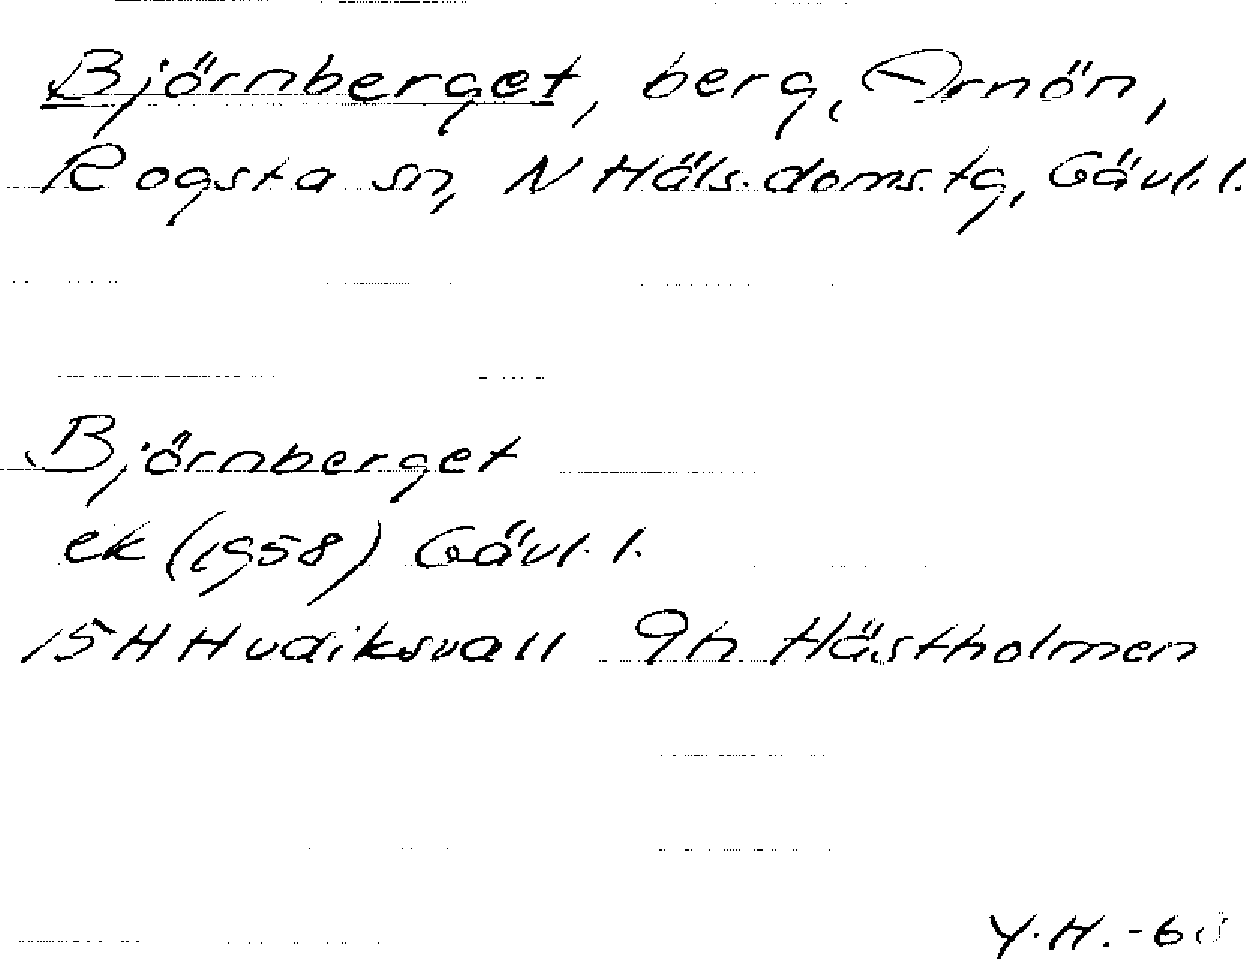 Björnberget, berg, Arnön,
Rogsta sn, N Häls. doms. tg, Gävl. l.
Björnberget
ek (1958) Gävl. l.
15H Hudiksvall 9h Hästholmen
Y.H.